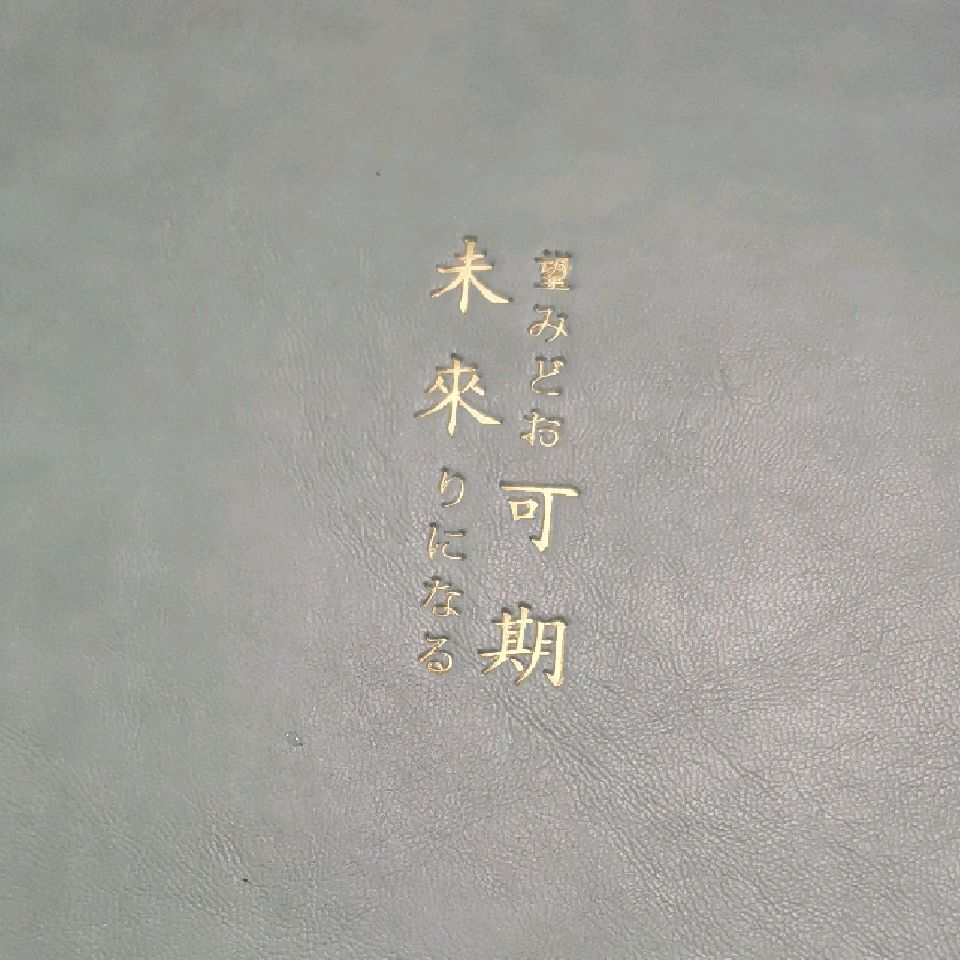 未來可期
望みどお
りになる